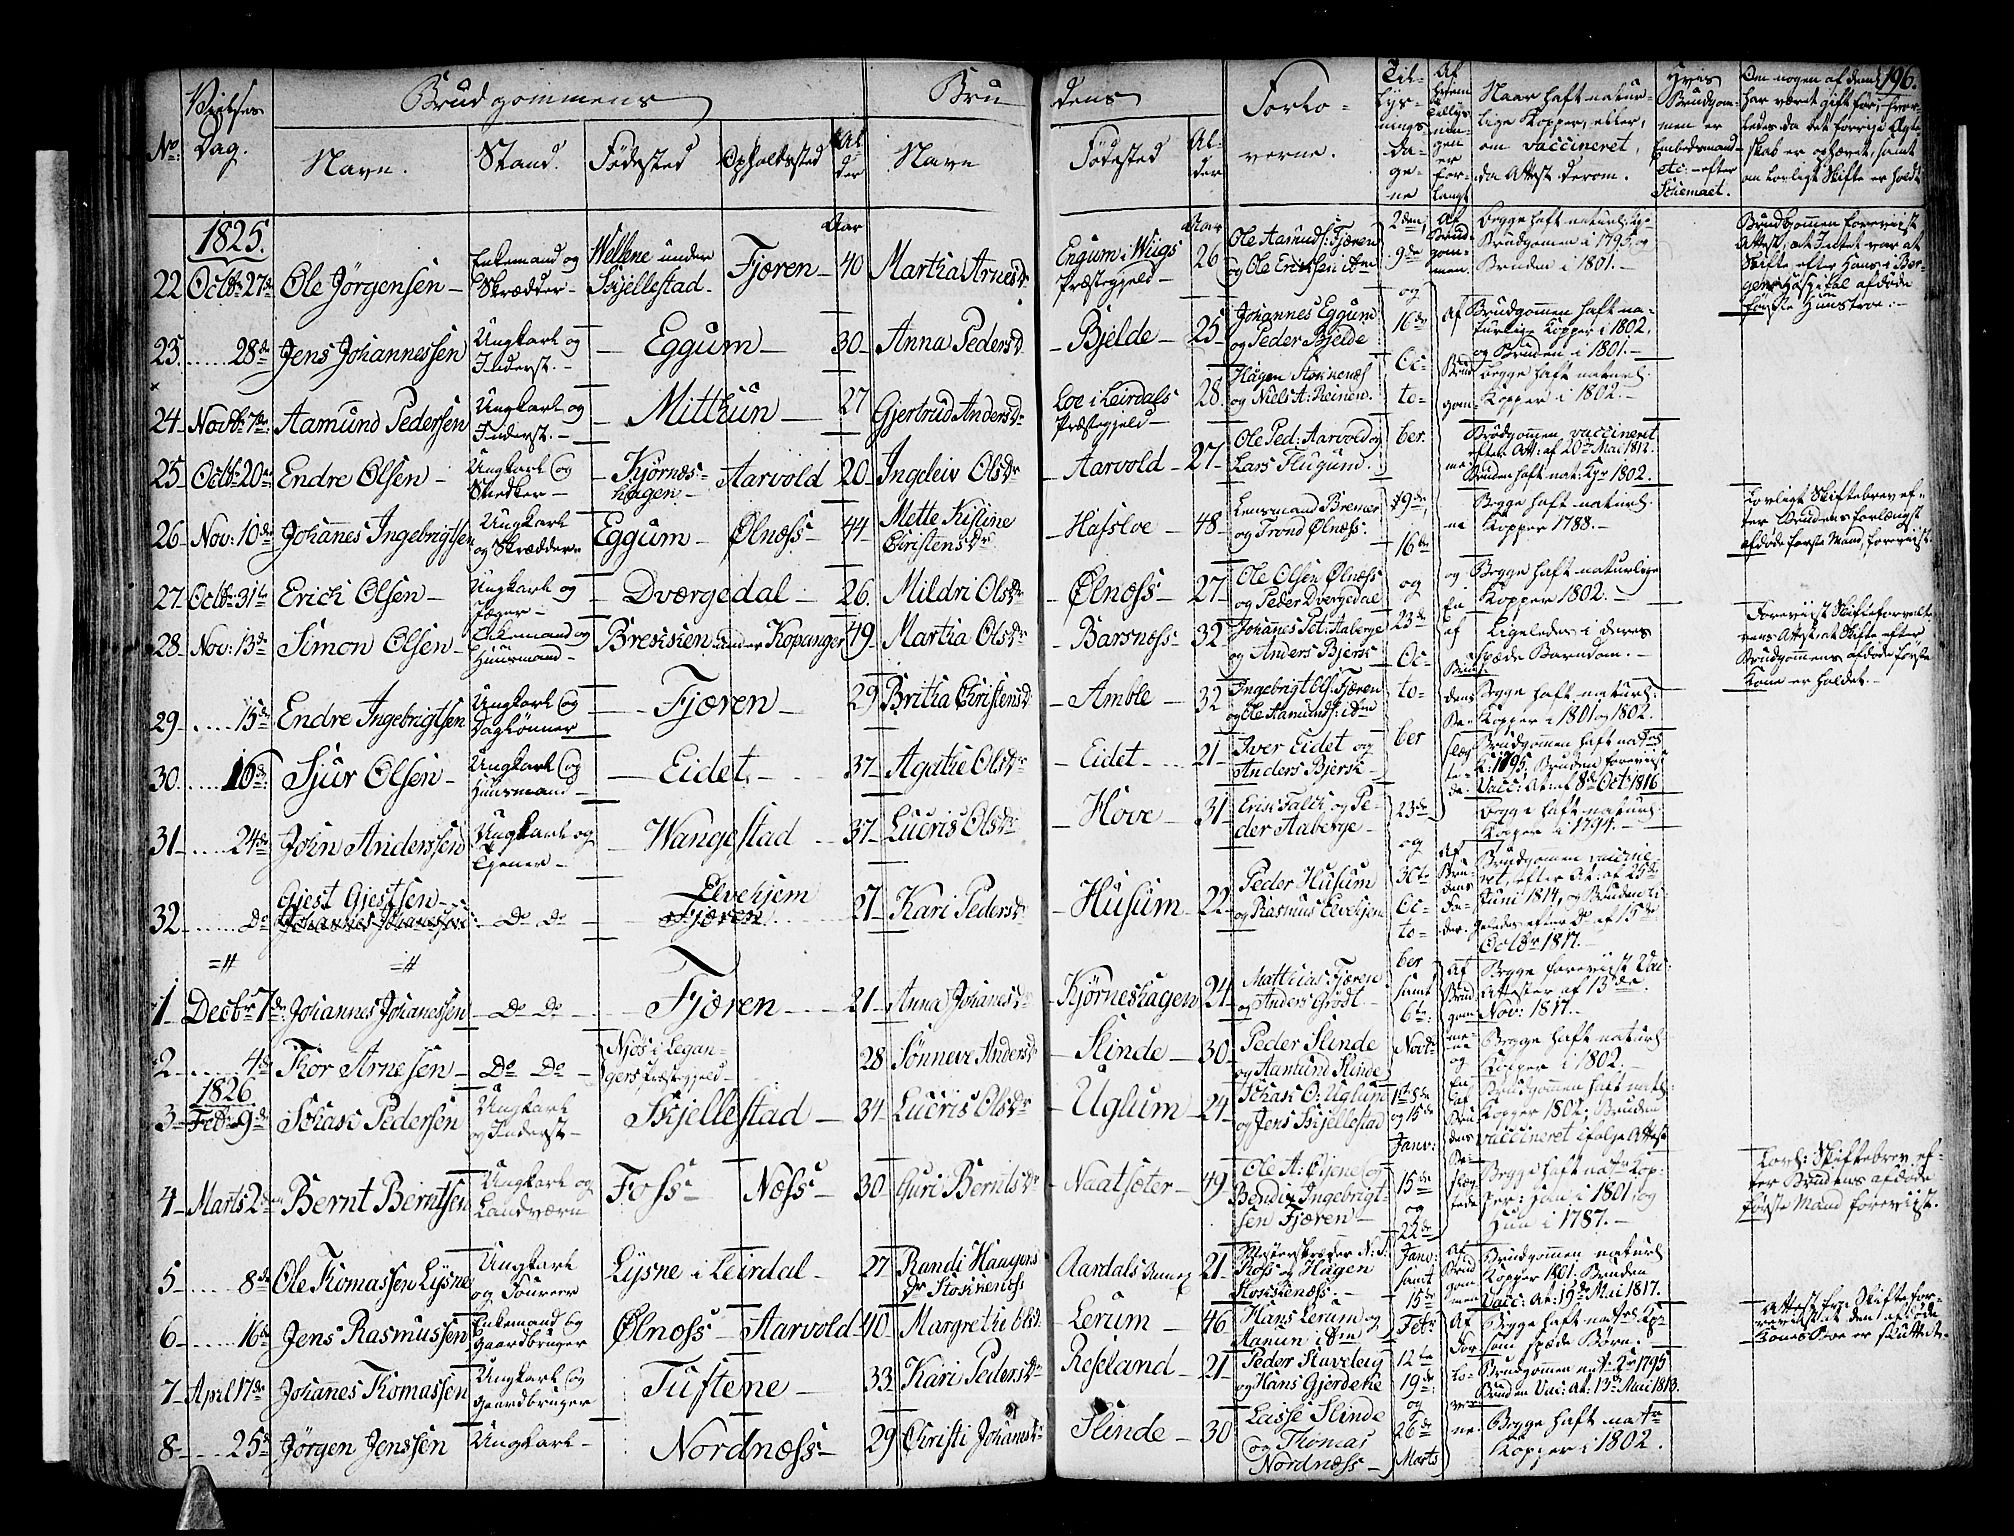 196.
No: Vielses Dag. Brudgommens Brudens Forlo-verne.
Navn. Stand. Fødested Opholdssted Alder Navn Fødested Alder
Til-lys-nings-da-ge-ne Af hvem Tillysningen er forlangt
Naar haft natur-lige Kopper, eller, om vaccineret, da Attest derom.
Hvis Brudgom-men er Embedsmand etc: - efter Schemaet.
Om nogen af dem har været gift før, hvor-ledes da det forrige Ægte-skab er ophævet, samt om lovligt Skifte er holdt
1825.
Aar Aar
22 Octbr 27de Ole Jörgensen - Enkemand og Skrædder - Wellene under Skjellestad - Fjæren - 40 Martha Arnesdr Engum i Wiigs Præstegjeld - 26 Ole Aamunds: Fjæren og Ole Ericksen ibm 2den, 9de Af Brudgommen Begge haft naturl: Ko: Brudgomen i 1795 og Bruden i 1801. - Brudgommen foreviist Attest, at Intet var at Skifte efter Hans i Bergens Hospital afdøde første Hustroe. -
23. ..... 28de Jens Johannessen Ungkarl og Inderst. - Eggum - 30 - Anna Pedersdr - Bjelde - 25 Johannes Eggum og Peder Bjelde og 16de af Brudgommen haft na-turlige Kopper i 1802, og Bruden i 1801. -
24. Novbr 7de Aamund Pedersen Ungkarl og Inderst. - Mitthun - 27 Gjertrud Andersdr Loe i Leirdals Præstegjeld - 28. Hagen Stokkenæs og Niels A: Reinen. Octo- Begge haft naturl: Kopper i 1802. -
25 Octbr 20de Endre Olsen - Ungkarl og Snedker - Kjörnes-hagen - Aarvold 20 Ingleiv Olsdr - Aarvold - 27 - Ole Ped: Aarvold og Lars Flugum. ber. Brudgommen vaccineret efter Att: af 20de Mai 1812. Bruden haft nat: Kpr 1802.
26 - Nov: 10de Johanes Ingebrigtsen Ungkarl og Skrædder - Eggum - Ølnæss - 44 Mette Kistine Christensdr - Hafsloe - 48 - Lensmand Bremer og Trond Ølnæss. 9de Begge haft naturl: Kopper 1788. - Lovligt Skiftebrev ef-ter Brudens forlængst afdøde første Mand, foreviist
27. Octbr 31te Erich Olsen - Ungkarl og Jæger - Dværgedal - 26. Mildri Olsdr - Ølnæss - 27 - Ole Olsen Ølnæss og Peder Dvergedal 16de og Begge haft naturlige Kopper 1802. -
28 Nov: 13de Simon Olsen - Enkemand og Huusmand - Brekken under Kopanger 49 - Martha Olsdr - Barsnæss - 32 Johannes Pet: Aaberge og Anders Bjerk 23de Ligeledes i deres spæde Barndom. - Foreviist Skifteforvalte-rens Attest, at Skifte efter Brudgomens afdøde første Kone er holdet -
29. .... 15de Endre Ingebrigtsen Ungkarl og Daglönner - Fjæren - 29 Britha Christensd - Amble - 32 Ingebrigt Ols: Fjæren og Ole Aamunds: ibm Octo- Begge haft naturl: Kopper i 1801 og 1802.
30. ..... 16de: Sjur Olsen - Ungkarl og Huusmand - Eidet. - 37 - Agathe Olsdr - Eidet. - ... 21 - Iver Eidet og Anders Bjerk - ber Brudgomen haft nat: K: 1795, Bruden foreviist Vacc: At: af 8de Octr 1816
31 - .... 24de John Anderssen Ungkarl og Tjener - Wangestad - 37 - Lucris Olsdr - Hove - 31 - Erik Falck og Pe-der Aaberge - 23de og Begge haft naturl: Kopper i 1794. -
Gjest Gjestsen - Elvehjem
32 ...... Do Johannes Johannessen Do Do - Fjæren ... 21 - Kari Pedersdr - Husum - 22 - Peder Husum og Rasmus Elvehjem 30te Octo- Brudgomen vaccine-ret, efter At: af 25de Juni 1814, og Bruden li-geledes efter Do af 15de Octbr 1817. -
=#= =#=
1 - Decbr 7de: Johannes Johanessen Do Do - Fjæren - 21 - Anna Johanesdr - Kjörneshagen 24 Matthias Fjæren og Anders Grodt - ber samt 6te: af Brudgom Begge foreviist Vac: Attester af 13de Nov: 1817. -
2 ...... 4de Thor Arnesen - Do Do - Njøs i Legan-gers Præstegjeld - 28 Sönneve Andersdr - Slinde - 30 Peder Slinde og Aamund Slinde Novbr Begge haft naturl: Kopper i 1802. -
1826
3 - Febr 9de Johan Pedersen Ungkarl og Inderst - Skjellestad - 34 - Lucris Olsdr - Uglum - 24 - Johan O: Uglum og Jens Skjellestad 1te 8de og 15de Janv: Brudgommen haft natl: Kopper 1802. Bruden vaccineret ifølge Attest
4 Marts 2de Bernt Berntsen Ungkarl og Landværn Foss - Næss - 30 Guri Berntsdr - Naatsæter - 49 Ole A: Øjene og Bendix Ingebrigt-sen Fjæren - 15de og 22de Begge haft natl Kop-per: han i 1801, og Hun i 1787. - Lovl: Skiftebrev ef-ter Brudens afdøde første Mand foreviist.
5 - .... 8de Ole Thomassen Lysne Ungkarl og Soureer Lysne i Leirdal - 27 - Randi Haagensdr Stokkenæss Aardals Annex 21 - Kloss og Hagen Stokkenæss. - Janv: samt 15de af Brudgommen Brudgommen naturl: Kopper 1801. Bruden Vacc: At: 19de Mai 1817.
6 - .... 16de Jens Rasmussen Enkemand og Gaardbruger Ølnæss - Aarvold 40 - Margrethe Olsd. - Lerum - 46 Hans Lerum og Mamun ibm Febr Af For- Begge haft natrl Kpr som spæde Börn. - Attest fra Skiftefor-valteren at den afdøde Kones Boe er sluttet. -
7 - April 17de Johanes Thomassen Ungkarl og Gaardbruger - Tuftene - 33 Kari Pedersdr - Reseland - 21 - Peder Stuveberg og Hans Gjerdeke 12te 19de: lo- Brudgommen nat: Kr 1795 Bruden Vac: At: 13de Mai 1813.
8 - ... 25de Jörgen Jenssen Ungkarl - Nordnæss - 29 Christi Johansdr - Slinde - 30 Lasse Slinde og Thomas Nordnæss - og 26de Marts Begge haft natr Kopper i 1802.